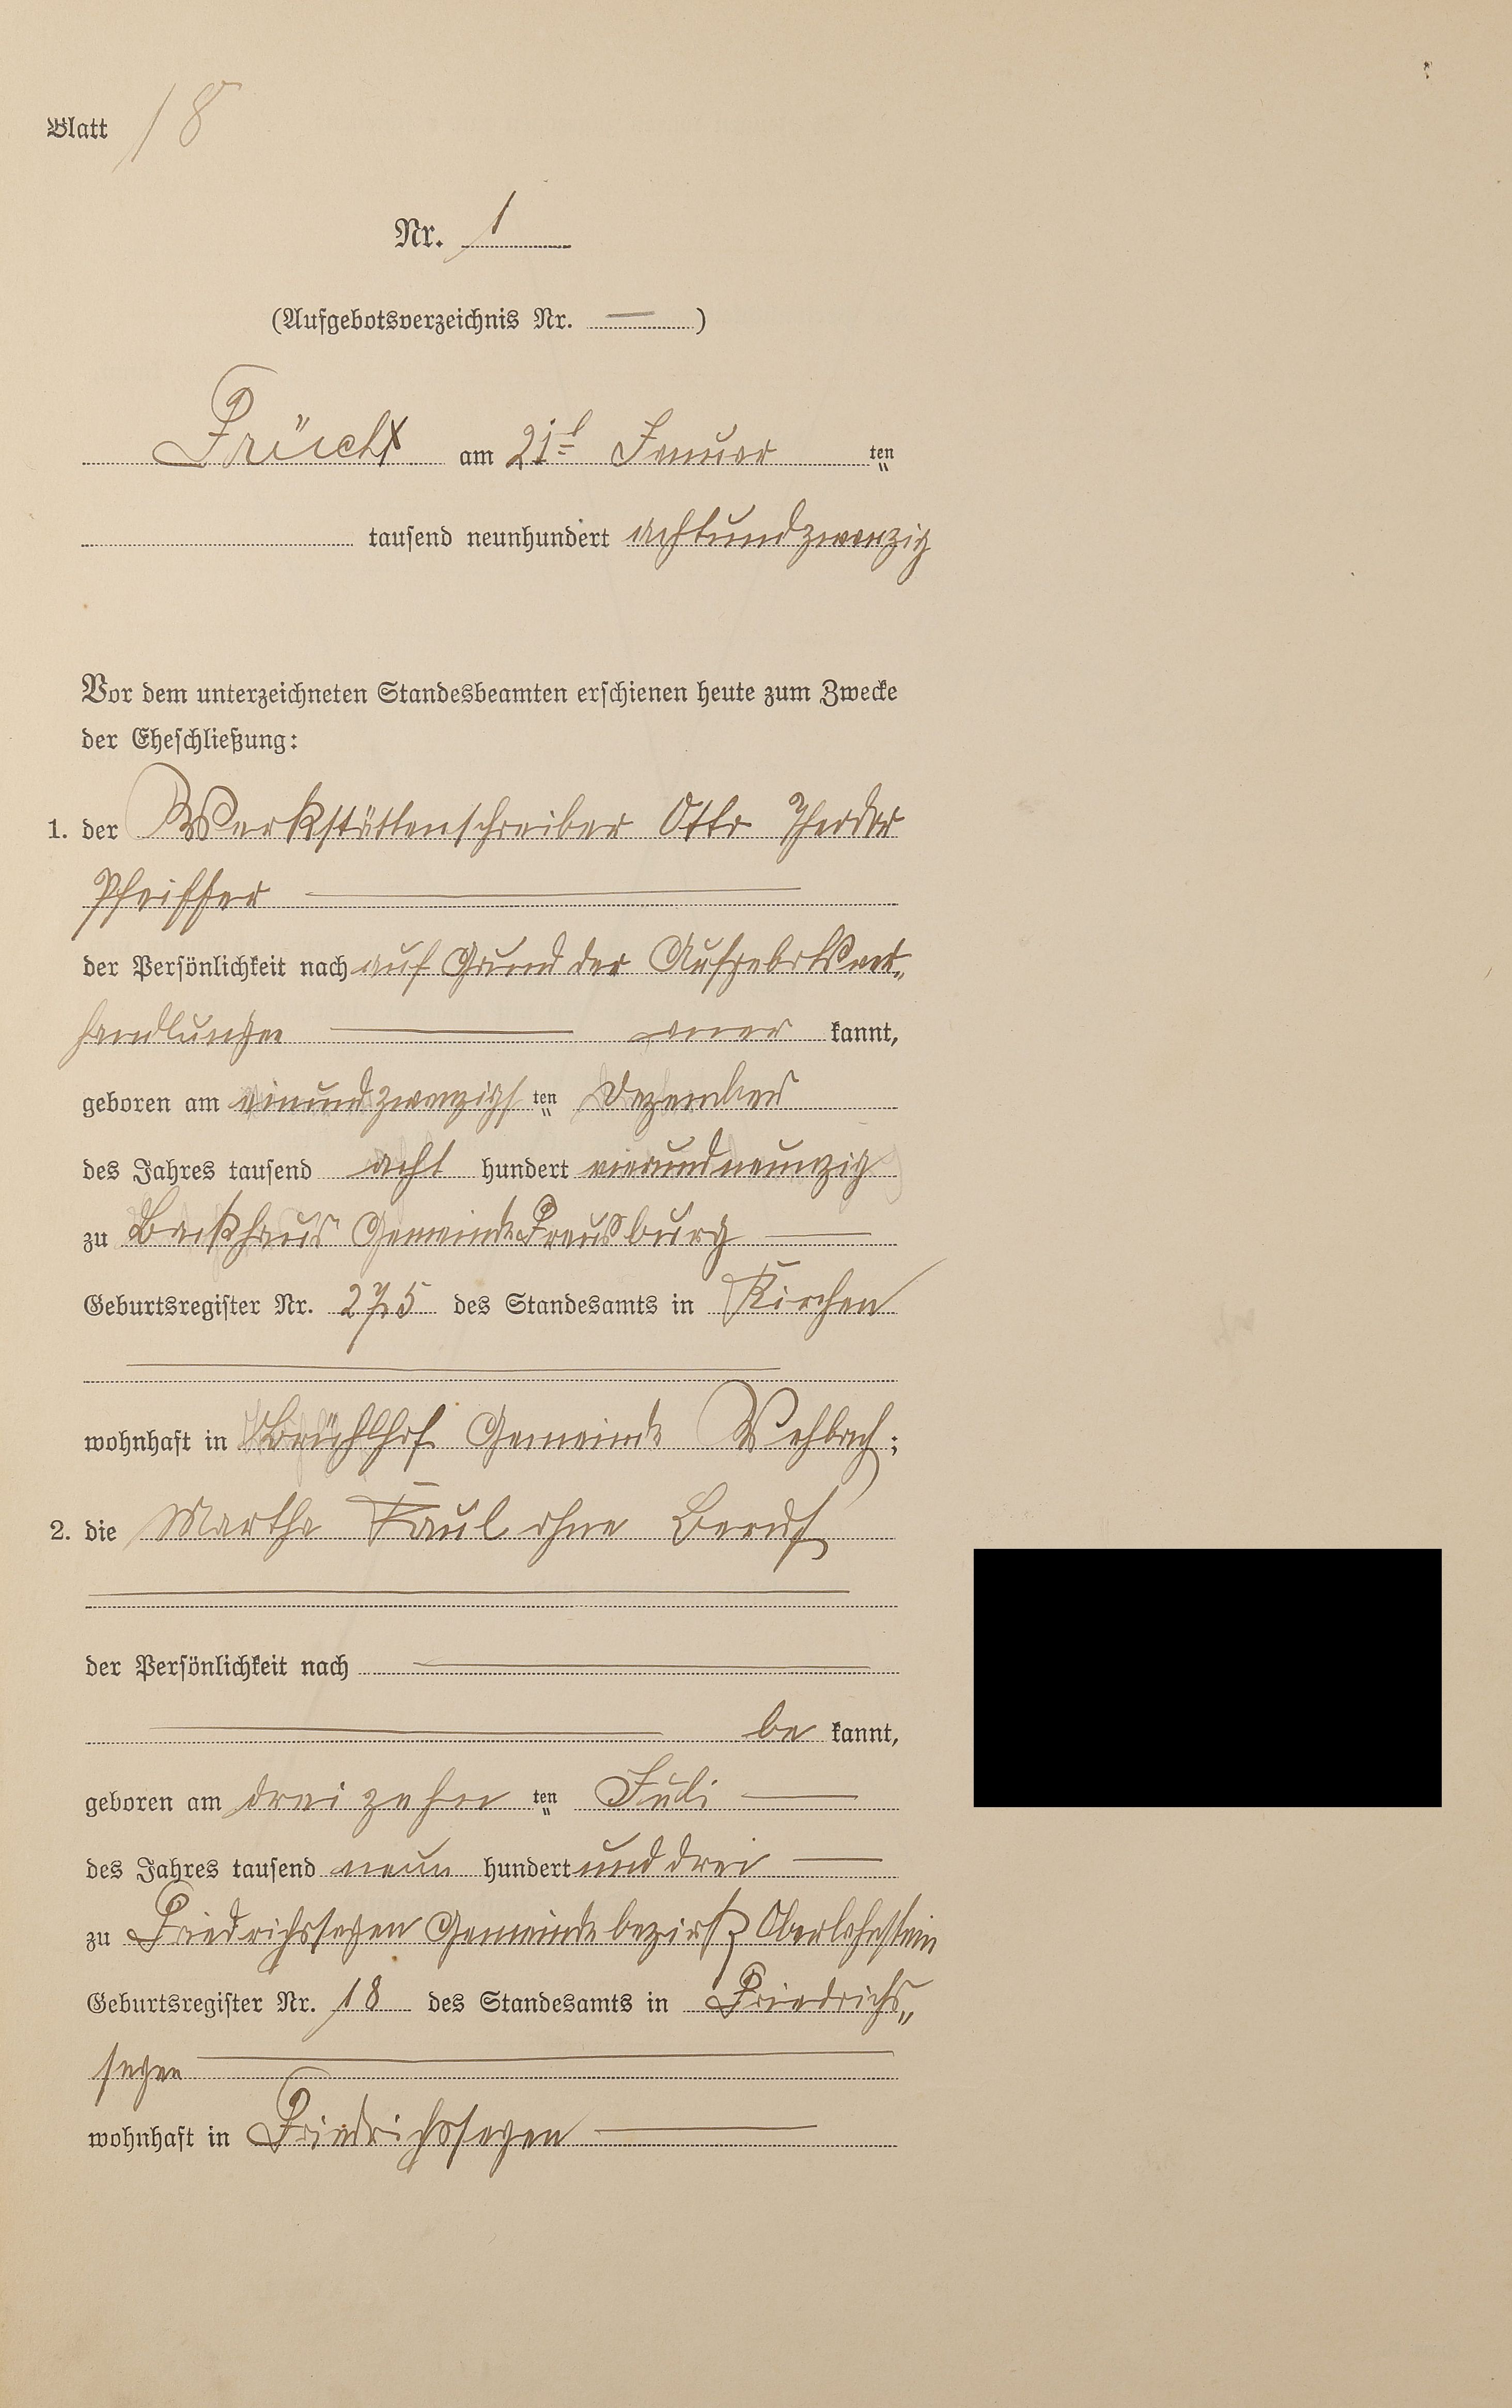 Blatt 18
Nr. 1
(Aufgebotsverzeichnis Nr. — )
Frücht am 21t Januar ten
tausend neunhundert achtundzwanzig
Vor dem unterzeichneten Standesbeamten erschienen heute zum Zwecke
der Eheschließung:
1. der Werkstättenschreiber Otto Theodor
Pfeiffer
der Persönlichkeit nach auf Grund der Aufgebotsver„
handlungen aner kannt,
geboren am einundzwanzigs ten Dezember
des Jahres tausend acht hundert vierundneunzig
zu Backhaus Gemeinde Freusburg
Geburtsregister Nr. 275 des Standesamts in Kirchen
wohnhaft in Brühlhof Gemeinde Wehbach;
2. die Martha Kaul ohne Beruf
der Persönlichkeit nach
be kannt,
geboren am dreizehn ten Juli
des Jahres tausend neun hundert und drei
zu Friedrichssegen Gemeindebezirk Oberlahnstein
Geburtsregister Nr. 18 des Standesamts in Friedrichs„
segen
wohnhaft in Friedrichssegen